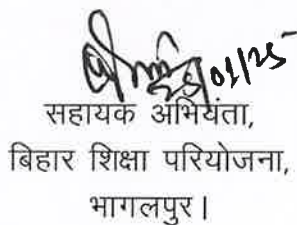 01/25
सहायक अभियंता,
बिहार शिक्षा परियोजना,
भागलपुर।